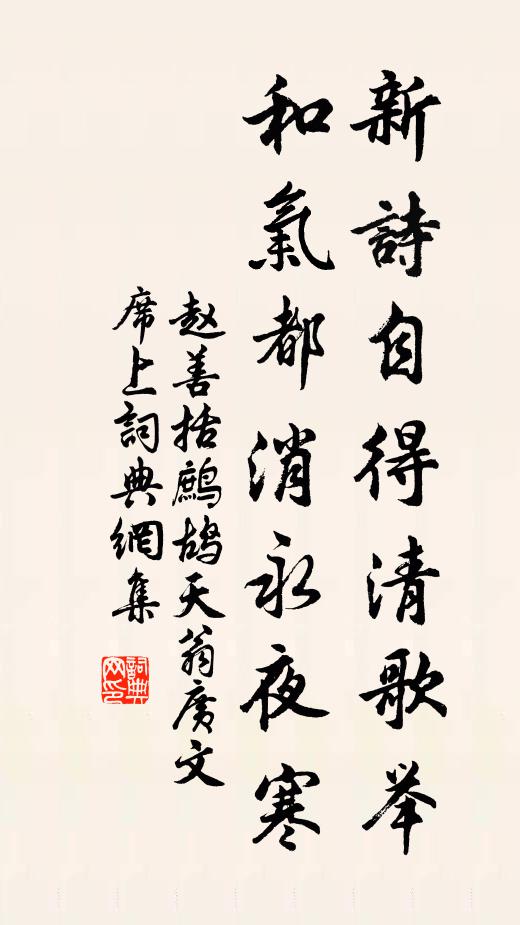 新詩自得清歌举
和氣都消永夜寒
赵善括鷓鴣天翁廣文
席上詞典網集
詞典网印